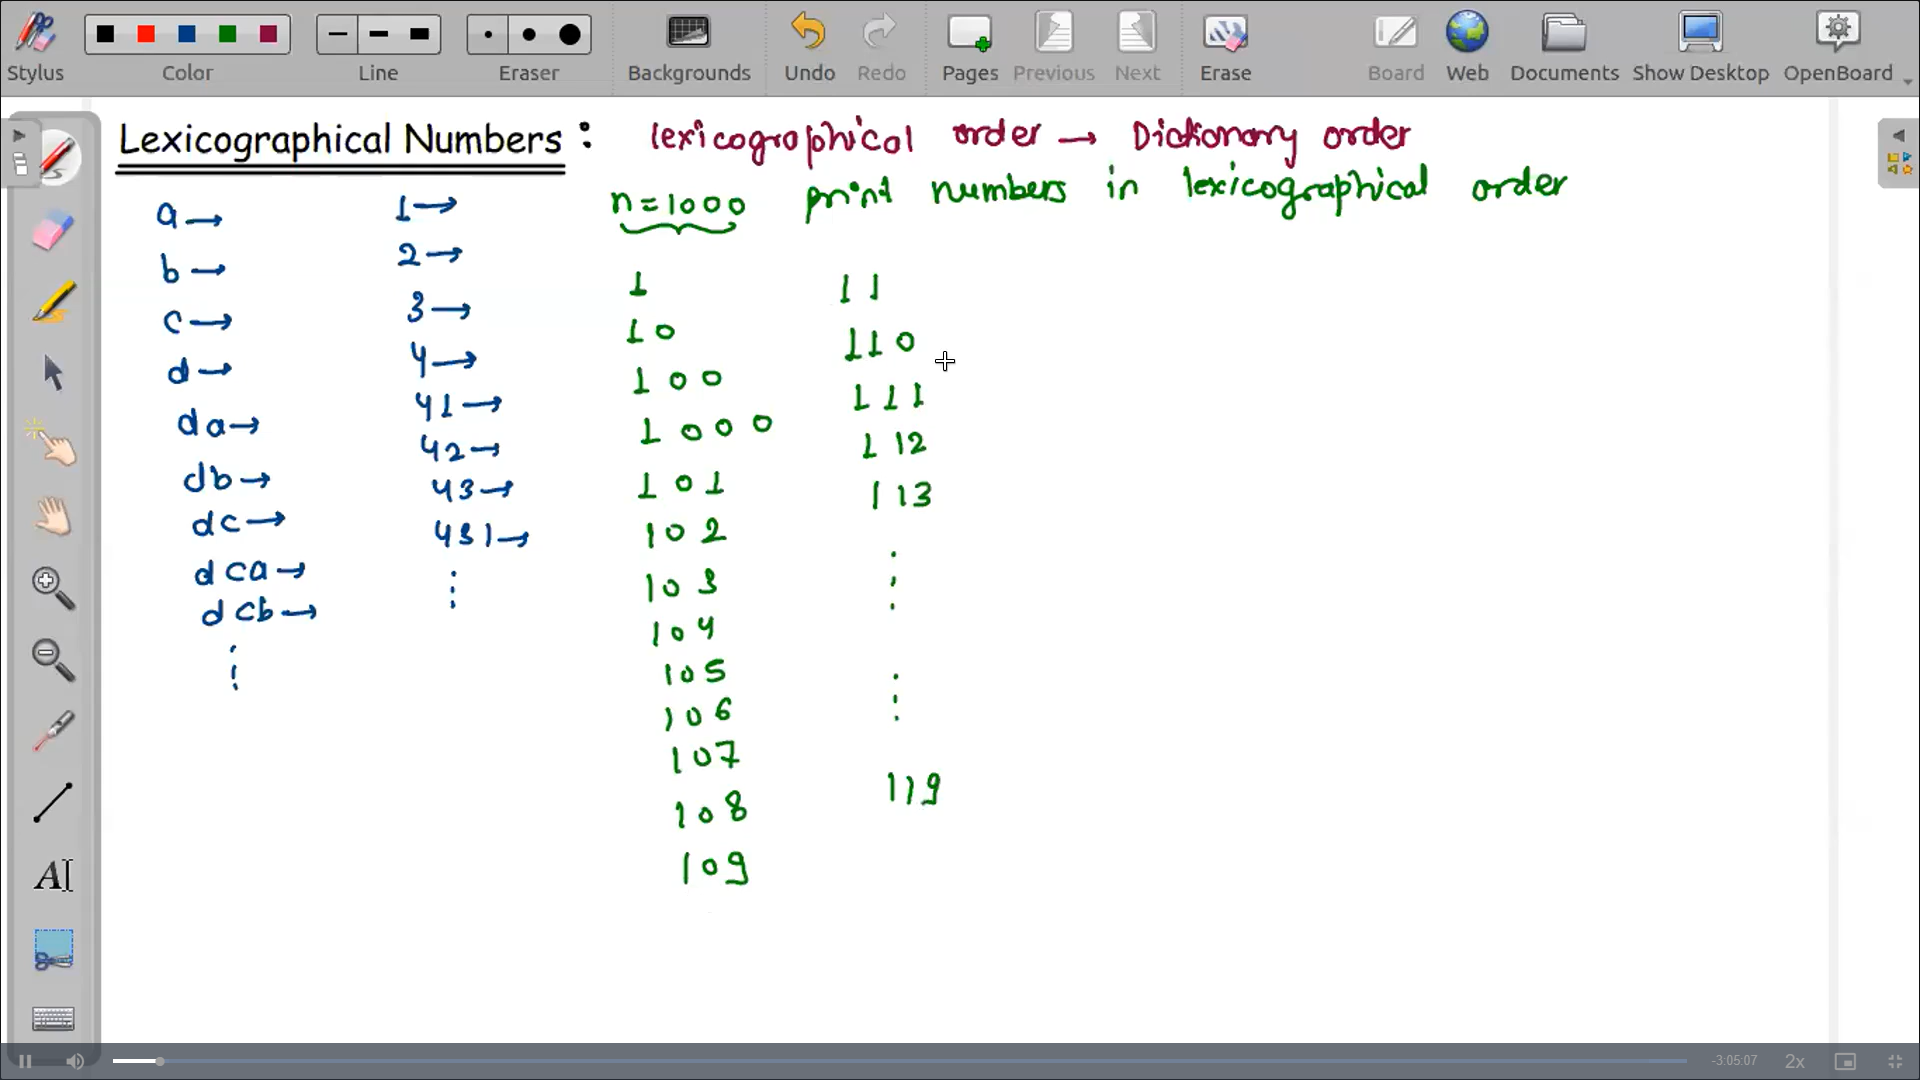 Stylus Color Line Eraser Backgrounds Undo Redo Pages Previous Next Erase Board Web Documents Show Desktop OpenBoard
Lexicographical Numbers : lexicographical order → Dictionary order
n = 1000 print numbers in lexicographical order
a →
b →
c →
d →
da →
db →
dc →
dca →
dcb →
⋮
1 →
2 →
3 →
4 →
41 →
42 →
43 →
431 →
⋮
1
10
100
1000
101
102
103
104
105
106
107
108
109
11
110
111
112
113
⋮
⋮
119
AI
-3:05:07 2x